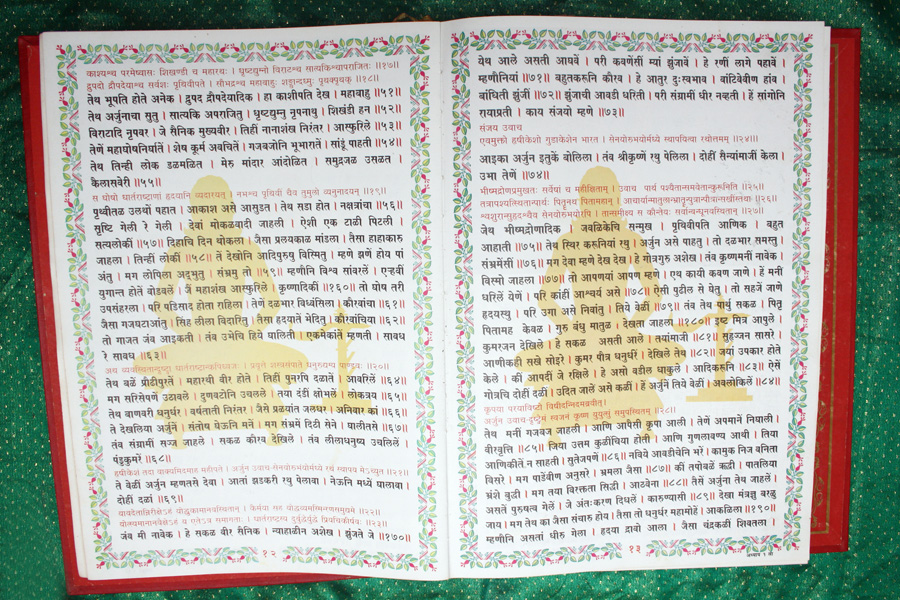 काश्यश्च परमेष्वासः शिखण्डी च महारथः । धृष्टद्युम्नो विराटश्च सात्यकिश्चापराजितः ॥१७॥
द्रुपदो द्रौपदेयाश्च सर्वशः पृथिवीपते । सौभद्रश्च महाबाहुः शङ्खान्दध्मुः पृथक्पृथक् ॥१८॥
तेथ भूपति होते अनेक । द्रुपद द्रौपदेयादिक । हा काशीपति देख । महाबाहु ॥५१॥
तेथ अर्जुनाचा सुतु । सात्यकि अपराजितु । धृष्टद्युम्नु नृपनाथु । शिखंडी हन ॥५२॥
विराटादि नृपवर । जे सैनिक मुख्यवीर । तिहीं नानाशंख निरंतर । आस्फुरिले ॥५३॥
तेणें महाघोषनिर्घातें । शेष कूर्म अवचितें । गजबजोनि भूभारातें । सांडूं पाहती ॥५४॥
तेथ तिन्ही लोक डळमळित । मेरु मांदार आंदोळित । समुद्रजळ उसळत ।
कैलासवेरी ॥५५॥
स घोषो धार्तराष्ट्राणां हृदयानि व्यदारयत् । नभश्च पृथिवीं चैव तुमुलो व्यनुनादयन् ॥१९॥
पृथ्वीतळ उलथों पहात । आकाश असे आसुडत । तेथ सडा होत । नक्षत्रांचा ॥५६॥
सृष्टि गेली रे गेली । देवां मोकळवादी जाहली । ऐशी एक टाळी पिटली ।
सत्यलोकीं ॥५७॥ दिहाचि दिन थोकला । जैसा प्रलयकाळ मांडला । तैसा हाहाकारु
जाहला । तिन्हीं लोकीं ॥५८॥ तें देखोनि आदिपुरुषु विस्मितु । म्हणे झणें होय पां
अंतु । मग लोपिला अद्भुतु । संभ्रमु तो ॥५९॥ म्हणौनि विश्व सांवरलें । एऱ्हवीं
युगान्त होतें वोडवलें । जैं महाशंख आस्फुरिले । कृष्णादिकीं ॥१६०॥ तो घोष तरी
उपसंहरला । परि पडिसाद होता राहिला । तेणें दळभार विध्वंसिला । कौरवांचा ॥६१॥
जैसा गजघटाआंतु । सिंह लीला विदारितु । तैसा हृदयातें भेदितु । कौरवांचिया ॥६२॥
तो गाजत जंव आइकती । तंव उभेचि हिये घालिती । एकमेकांतें म्हणती । सावध
रे सावध ॥६३॥
अथ व्यवस्थितान्दृष्ट्वा धार्तराष्ट्रान्कपिध्वजः । प्रवृत्ते शस्त्रसंपाते धनुरुद्यम्य पाण्डवः ॥२०॥
तेथ बळें प्रौढीपुरते । महारथी वीर होते । तिहीं पुनरपि दळातें । आवरिलें ॥६४॥
मग सरिसेपणें उठावले । दुणवटोनि उचलले । तया दंडीं क्षोभलें । लोकत्रय ॥६५॥
तेथ बाणवरी धनुर्धर । वर्षताती निरंतर । जैसे प्रळयांत जलधर । अनिवार कां ॥६६॥
ते देखलिया अर्जुनें । संतोष घेऊनि मनें । मग संभ्रमें दिठी सेने । घालीतसे ॥६७॥
तंव संग्रामीं सज्ज जाहले । सकळ कौरव देखिले । तंव लीलाधनुष्य उचलिलें ।
पंडुकुमरें ॥६८॥
हृषीकेशं तदा वाक्यमिदमाह महीपते । अर्जुन उवाच-सेनयोरुभयोर्मध्ये रथं स्थापय मेऽच्युत ॥२१॥
ते वेळीं अर्जुन म्हणतसे देवा । आतां झडकरी रथु पेलावा । नेऊनि मध्यें घालावा ।
दोहीं दळां ॥६९॥
यावदेतान्निरीक्षेऽहं योद्धुकामानवस्थितान् । कैर्मया सह योद्धव्यमस्मिन्रणसमुद्यमे ॥२२॥
योत्स्यमानानवेक्षेऽहं य एतेऽत्र समागताः । धार्तराष्ट्रस्य दुर्बुद्धेर्युद्धे प्रियचिकीर्षवः ॥२३॥
जंव मी नावेक । हे सकळ वीर सैनिक । न्याहाळीन अशेख । झुंजते जे ॥१७०॥
१२
येथ आले असती आघवे । परी कवणेंसीं म्यां झुंजावें । हे रणीं लागे पहावें ।
म्हणौनियां ॥७१॥ बहुतकरूनि कौरव । हे आतुर दुःस्वभाव । वांटिवेवीण हांव ।
बांधिती झुंजीं ॥७२॥ झुंजाची आवडी धरिती । परी संग्रामीं धीर नव्हती । हें सांगोनि
रायाप्रती । काय संजयो म्हणे ॥७३॥
संजय उवाच
एवमुक्तो हृषीकेशो गुडाकेशेन भारत । सेनयोरुभयोर्मध्ये स्थापयित्वा रथोत्तमम् ॥२४॥
आइका अर्जुन इतुकें बोलिला । तंव श्रीकृष्णें रथु पेलिला । दोहीं सैन्यांमाजीं केला ।
उभा तेणें ॥७४॥
भीष्मद्रोणप्रमुखतः सर्वेषां च महीक्षिताम् । उवाच पार्थ पश्यैतान्समवेतान्कुरूनिति ॥२५॥
तत्रापश्यत्स्थितान्पार्थः पितॄनथ पितामहान् । आचार्यान्मातुलान्भ्रातॄन्पुत्रान्पौत्रान्सखींस्तथा ॥२६॥
श्वशुरान्सुहृदश्चैव सेनयोरुभयोरपि । तान्समीक्ष्य स कौन्तेयः सर्वान्बन्धूनवस्थितान् ॥२७॥
जेथ भीष्मद्रोणादिक । जवळिकेचि सन्मुख । पृथिवीपति आणिक । बहुत
आहाती ॥७५॥ तेथ स्थिर करूनियां रथु । अर्जुन असे पाहतु । तो दळभार समस्तु ।
संभ्रमेंसीं ॥७६॥ मग देवा म्हणे देख देख । हे गोत्रगुरु अशेख । तंव कृष्णमनीं नावेक ।
विस्मो जाहला ॥७७॥ तो आपणयां आपण म्हणे । एथ कायी कवण जाणे । हें मनीं
धरिलें येणें । परि कांहीं आश्चर्य असे ॥७८॥ ऐसी पुढील से घेतु । तो सहजें जाणे
हृदयस्थु । परि उगा असे निवांतु । तिये वेळीं ॥७९॥ तंव तेथ पार्थु सकळ । पितृ
पितामह केवळ । गुरु बंधु मातुळ । देखता जाहला ॥१८०॥ इष्ट मित्र आपुले ।
कुमरजन देखिले । हे सकळ असती आले । तयांमाजी ॥८१॥ सुहृज्जन सासरे ।
आणीकही सखे सोइरे । कुमर पौत्र धनुर्धरें । देखिले तेथ ॥८२॥ जयां उपकार होते
केले । कीं आपदीं जे रक्षिले । हे असो वडील धाकुले । आदिकरूनि ॥८३॥ ऐसें
गोत्रचि दोहीं दळीं । उदित जालें असे कळीं । हें अर्जुनें तिये वेळीं । अवलोकिलें ॥८४॥
कृपया परयाविष्टो विषीदन्निदमब्रवीत् ।
अर्जुन उवाच-दृष्ट्वेमं स्वजनं कृष्ण युयुत्सुं समुपस्थितम् ॥२८॥
तेथ मनीं गजबज जाहली । आणि आपैसी कृपा आली । तेणें अपमानें निघाली ।
वीरवृत्ति ॥८५॥ जिया उत्तम कुळींचिया होती । आणि गुणलावण्य आथी । तिया
आणिकीतें न साहती । सुतेजपणें ॥८६॥ नविये आवडीचेनि भरें । कामुक निज वनिता
विसरे । मग पाडेंवीण अनुसरे । भ्रमला जैसा ॥८७॥ कीं तपोबळें ऋद्धी । पातलिया
भ्रंशे बुद्धी । मग तया विरक्तता सिद्धी । आठवेना ॥८८॥ तैसें अर्जुना तेथ जाहलें ।
असतें पुरुषत्व गेलें । जे अंतःकरण दिधलें । कारुण्यासी ॥८९॥ देखा मंत्रज्ञु बरळु
जाय । मग तेथ का जैसा संचारु होय । तैसा तो धनुर्धर महामोहें । आकळिला ॥१९०॥
म्हणौनि असतां धीरु गेला । हृदया द्रावो आला । जैसा चंद्रकळीं शिवतला ।
१३
अध्याय १ ला